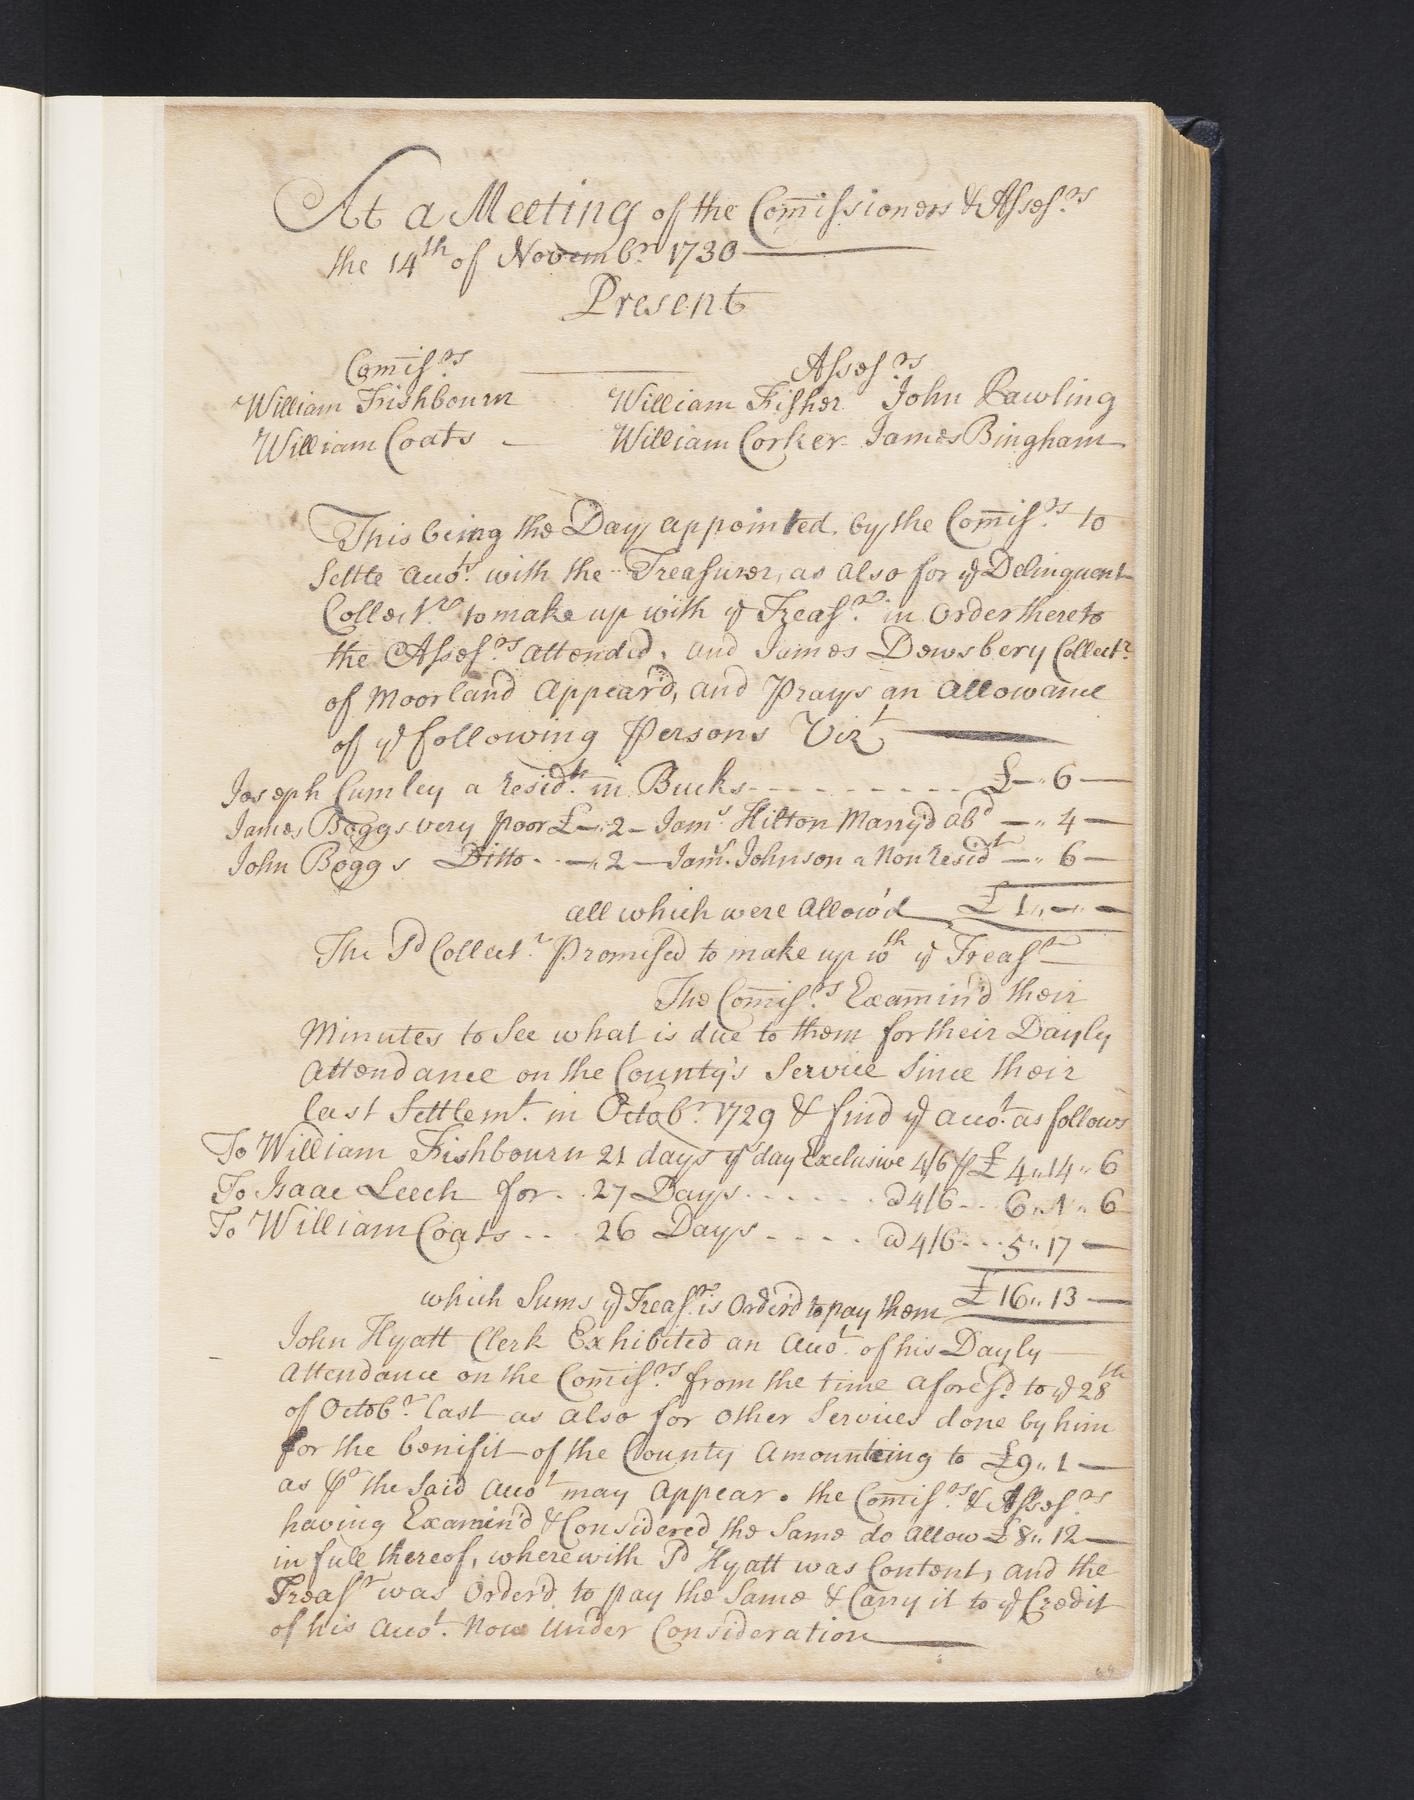 At a Meeting of the Com̄issioners & Assesrs
the 14th of Novembr 1730
Present
Com̄isrs Assesrs
William Fishbourn William Fisher John Rawling
William Coats William Corker James Bingham
This being the Day appointed by the Com̄isrs to
Settle Accots with the Treasurer, as also for ye Delinquent
Collectrs to make up with ye Treasr. in Order thereto
the Assesrs attended, and James Dewsbery Collectr
of Moorland Appear'd, and Prays an Allowance
of ye following Persons Vizt
Joseph Cumley a Residt in Bucks - - - - - - - - - £ — „ 6 —
James Boggs very poor £ — „ 2 — Jams Hilton Marry'd abd — „ 4 —
John Boggs Ditto - - — „ 2 — Jams Johnson a Non Residt — „ 6 —
all which were Allow'd £ 1 „ — „ —
The Sd Collectr Promised to make up wth ye Treasr
The Com̄isrs Examin'd their
Minutes to See what is due to them for their Dayly
Attendance on the County's Service Since their
last Settlemt. in Octobr 1729 & find ye accot. as follows
To William Fishbourn 21 days ys day Exclusive 4/6 p £ 4 „ 14 „ 6
To Isaac Leech for - - 27 Days - - - - - - @ 4/6 - - - 6 „ 1 „ 6
To William Coats - - - 26 Days - - - - - @ 4/6 - - - 5 „ 17 —
which Sums ye Treasr is Order'd to pay them £ 16 „ 13 —
John Hyatt Clerk Exhibited an Accot. of his Dayly
Attendance on the Com̄isrs from the time aforesd to ye 28th
of Octobr last as also for other Services done by him
for the benifit of the County Amounteing to £ 9 „ 1 —
as pr the Said Accot may Appear. the Com̄isrs & Assesrs
having Examin'd & Considered the Same do allow £ 8 „ 12 —
in full thereof, wherewith Sd Hyatt was Content, and the
Treasr was Order'd to pay the Same & Carry it to ye Credit
of his Accot. Now Under Consideration